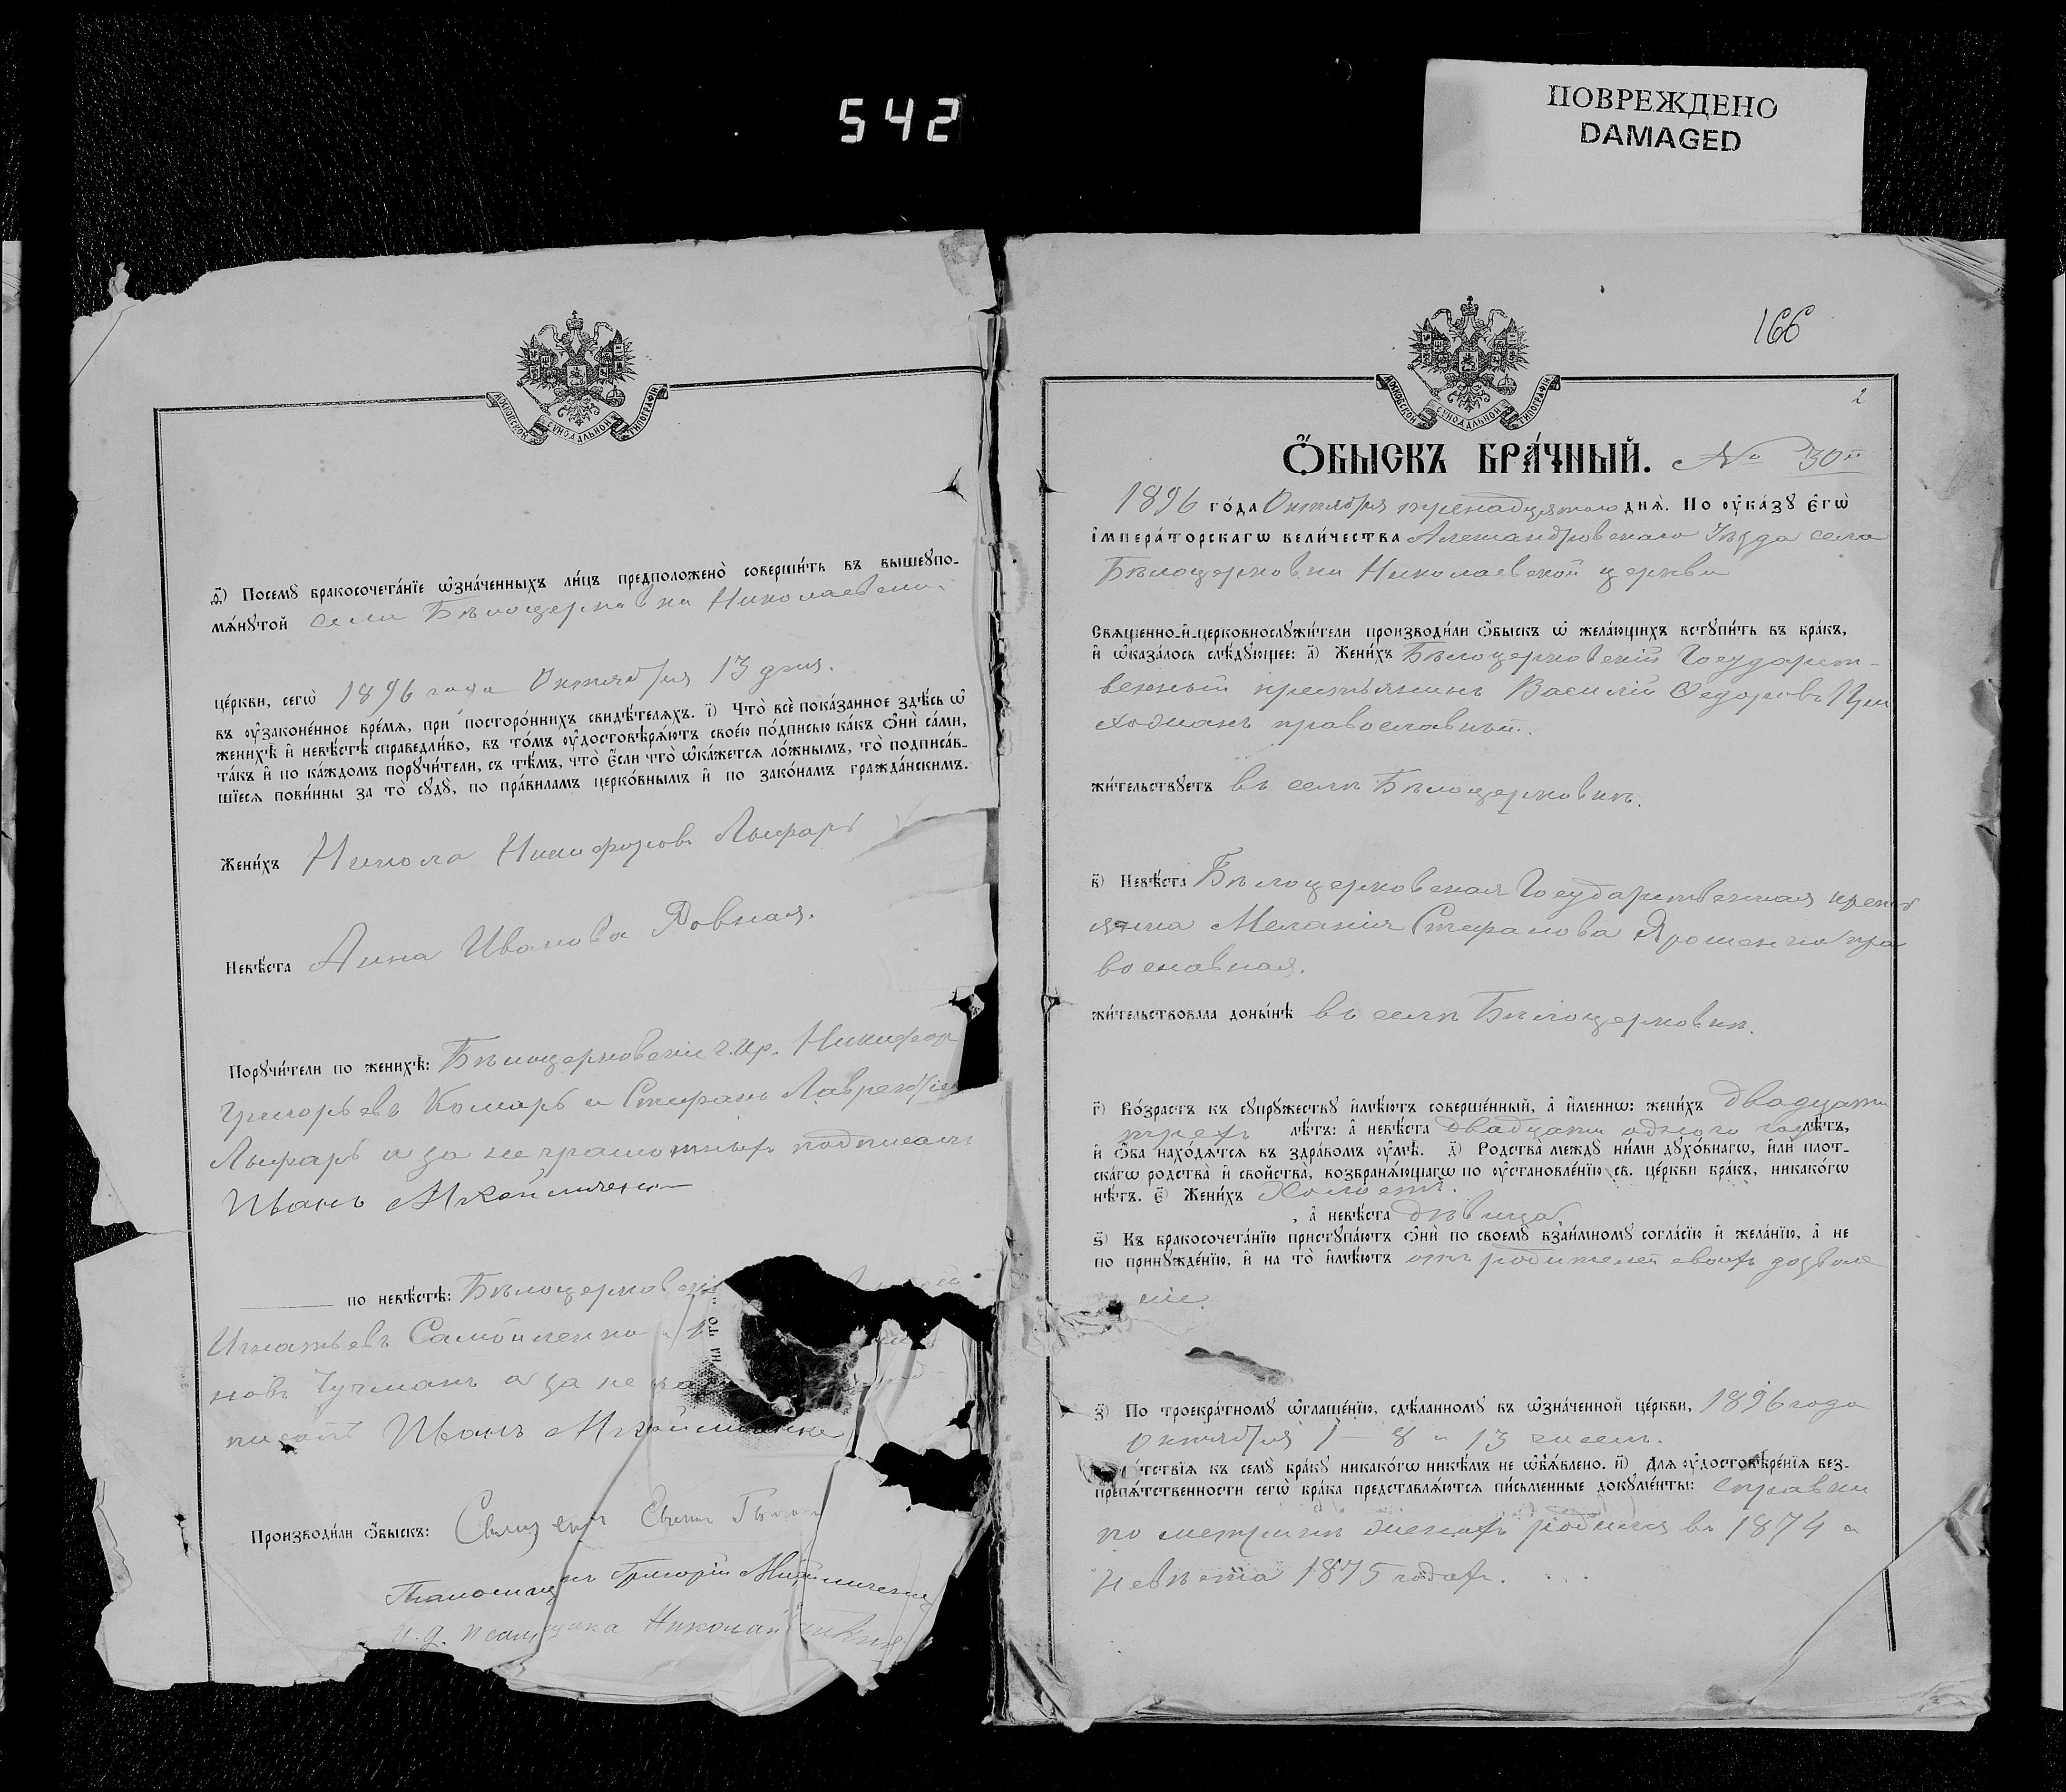 542
ПОВРЕЖДЕНО
DAMAGED
МОСКОВСКОЙ СѴНОДАЛЬНОЙ ТИПОГРАФІИ
ѳ҃) Посемꙋ бракосочета́нїе ѡ҆зна́ченныхъ ли́цъ предположено̀ соверши́ть въ вышеꙋпо-
мѧ́нꙋтой села Бѣлоцерковки Николаевской
це́ркви, сегѡ̀ 1896 года Октября 13 дня.
въ ᲂу҆зако́ненное вре́мѧ, при посторо́ннихъ свидѣ́телѧхъ. і҃) Что̀ всѐ пока́занное здѣ́сь ѡ҆
женихѣ̀ и҆ невѣ́стѣ справедли́во, въ то́мъ ᲂу҆достовѣрѧ́ютъ свое́ю по́дписью ка́къ ѻ҆нѝ са́ми,
та́къ и҆ по ка́ждомъ порꙋчи́тели, съ тѣ́мъ, что̀ є҆́сли что̀ ѡ҆ка́жетсѧ ло́жнымъ, то̀ подписа́в-
шїесѧ пови́нны за то̀ сꙋдꙋ̀, по пра́виламъ церко́внымъ и҆ по зако́намъ гражда́нскимъ.
Жени́хъ Никола Никифоровъ Лыфарь
Невѣ́ста Анна Иванова Ровная.
Порꙋчи́тели по женихѣ̀: Бѣлоцерковскіе г. кр. Никифор
Григорьевъ Комарь и Стефанъ Лаврентіе
Лыфарь и за неграмотныхъ подписалъ
Иванъ
по невѣ́стѣ: Бѣлоцерковскі
Игнатьевъ Самойленко и
новъ Гучманъ а за не
писалъ Иванъ
на то
Производи́ли ѻ҆́быскъ: Священ
Григорій
и. д. псаломщика Николай
166
МОСКОВСКОЙ СѴНОДАЛЬНОЙ ТИПОГРАФІИ
2
Ѻ҆́БЫСКЪ БРА́ЧНЫЙ. № 30й
1896 го́да Октября тренадцатаго днѧ̀. По ᲂу҆ка́зꙋ є҆гѡ̀
і҆мпера́торскагѡ вели́чества Александровскаго Уѣзда села
Бѣлоцерковки Николаевской церкви
Свѧще́нно-и҆-церковнослꙋжи́тели производи́ли ѻ҆́быскъ ѡ҆ жела́ющихъ встꙋпи́ть въ бра́къ,
и҆ ѡ҆каза́лось слѣ́дꙋющее: а҃) Жени́хъ Бѣлоцерковскій Государст-
венный крестьянинъ Василій Федоровъ При
ходманъ православный.
жи́тельствꙋетъ въ селѣ Бѣлоцерковкѣ.
в҃) Невѣ́ста Бѣлоцерковская Государственная кресть
янка Меланія Стефанова Ярошенко пра
вославная.
жи́тельствовала донынѣ̀ въ селѣ Бѣлоцерковкѣ.
г҃) Во́зрастъ къ сꙋпрꙋ́жествꙋ и҆мѣ́ютъ соверше́нный, а҆ и҆́меннѡ: жени́хъ двадцати
трехъ лѣ́тъ: а҆ невѣ́ста двадцати одного года лѣ́тъ,
и҆ ѻ҆́ба нахо́дѧтсѧ въ здра́вомъ ᲂу҆мѣ̀. д҃) Родства̀ междꙋ ни́ми дꙋхо́внагѡ, и҆лѝ плот-
ска́гѡ родства̀ и҆ сво́йства, возбранѧ́ющагѡ по ᲂу҆становле́нїю св. це́ркви бра́къ, никако́гѡ
нѣ́тъ. є҃) Жени́хъ Холостъ.
, а҆ невѣ́ста дѣвица.
ѕ҃) Къ бракосочета́нїю пристꙋпа́ютъ ѻ҆нѝ по своемꙋ̀ взаи́мномꙋ согла́сїю и҆ жела́нїю, а҆ не
по принꙋжде́нїю, и҆ на то̀ и҆мѣ́ютъ отъ родителей своихъ дозволе
ніе.
з҃) По троекра́тномꙋ ѡ҆глаше́нїю, сдѣ́ланномꙋ въ ѡ҆зна́ченной це́ркви, 1896 года
октября 1 – 8 и 13 чиселъ.
тствїѧ къ семꙋ̀ бра́кꙋ никако́гѡ никѣ́мъ не ѡ҆бъѧ́влено. и҃) Длѧ ᲂу҆достовѣре́нїѧ без-
препѧ́тственности сегѡ̀ бра́ка представлѧ́ютсѧ пи́сьменные докꙋме́нты: справки
по метрикѣ женихъ родился въ 1874 а
невѣста 1875 годахъ.